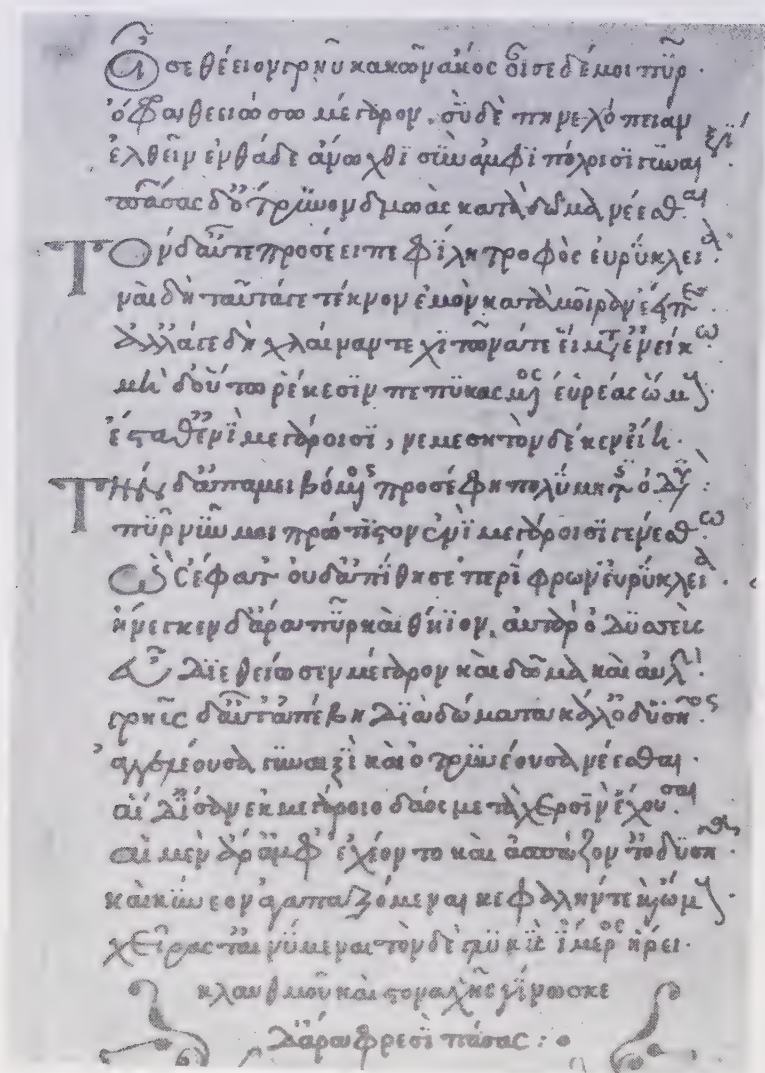 Οἶσε θέειον γρηῢ κακῶν ἄκος οἶσε δέ μοι πῦρ.
ὄφρα θεειώσω μέγαρον. σὺ δὲ πηνελόπειαν
ἐλθεῖν ἐνθάδε ἄνωχθι σὺν ἀμφιπόλοισι γυναιξί.
πάσας δ' ὄτρυνον δμωὰς κατὰ δῶμα νέεσθαι
Τὸν δ' αὖτε προσέειπε φίλη τροφὸς εὐρύκλεια.
ναὶ δὴ ταῦτά γε τέκνον ἐμὸν κατὰ μοῖραν ἔειπες
ἀλλ' ἄγε δὴ χλαίναν τε χιτῶνά τε εἵματ' ἐνείκω
μὴ δ' οὕτω ῥάκεσιν πεπυκασμένος εὐρέας ὤμους.
ἕσταθ' ἐνὶ μεγάροισι, νεμεσητὸν δέ κεν εἴη.
Τὴν δ' ἀπαμειβόμενος προσέφη πολύμητις ὀδυσσεύς:
πῦρ νῦν μοι πρώτιστον ἐνὶ μεγάροισι γενέσθω
Ὣς ἔφατ' οὐδ' ἀπίθησε περίφρων εὐρύκλεια.
ἤνεγκεν δ' ἄρα πῦρ καὶ θήϊον. αὐτὰρ ὀδυσσεὺς
εὖ διεθείωσεν μέγαρον καὶ δῶμα καὶ αὐλήν.
γρηῢς δ' αὖτ' ἀπέβη διὰ δώματα κάλ' ὀδυσῆος.
ἀγγελέουσα γυναιξὶ καὶ ὀτρυνέουσα νέεσθαι.
αἱ δ' ἴσαν ἐκ μεγάροιο δάος μετὰ χερσὶν ἔχουσαι.
αἱ μὲν ἄρ' ἀμφ' ἐχέοντο καὶ ἀσπάζοντ' ὀδυσῆα.
καὶ κύνεον ἀγαπαζόμεναι κεφαλήν τε καὶ ὤμους.
χεῖράς τ' αἰνύμεναι τὸν δὲ γλυκὺς ἵμερος ᾕρει.
κλαυθμοῦ καὶ στοναχῆς γίνωσκε
δ' ἄρα φρεσὶ πάσας: